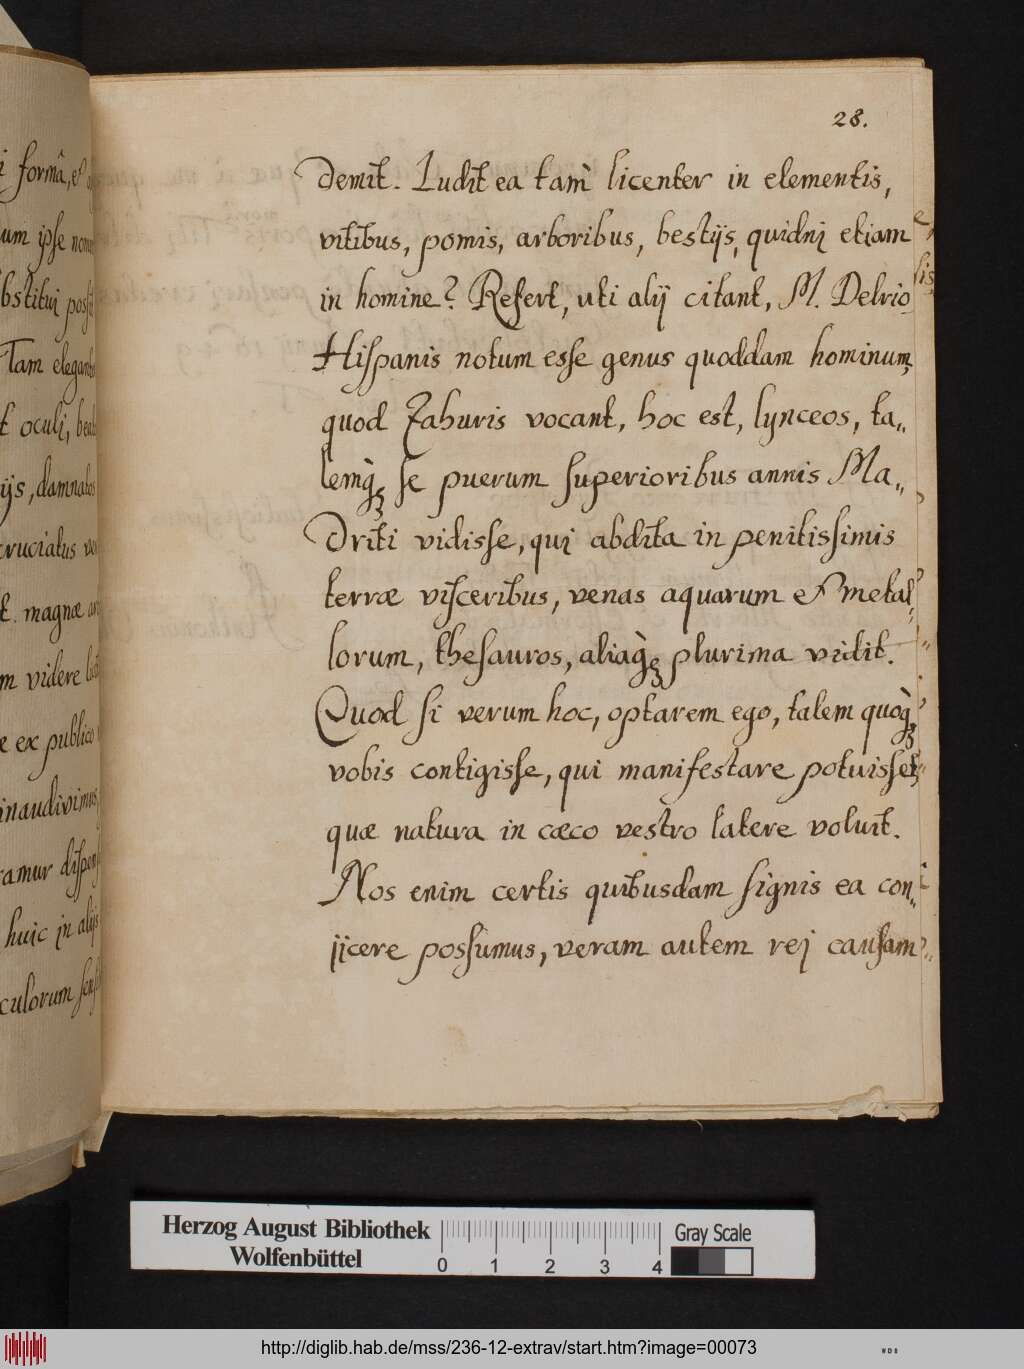 28.
demit. Ludit ea tam̀ licenter in elementis,
vitibus, pomis, arboribus, bestijs, quidnj etiam
in homine? Refert, uti alij citant, M. Delrio,
Hispanis notum esse genus quoddam hominum,
quod Zahuris vocant, hoc est, lynceos, ta„
lemq̀ꝫ se puerum superioribus annis Ma„
driti vidisse, quj abdita in penitissimis
terræ visceribus, venas aquarum et metal„
lorum, thesauros, aliaq̀ꝫ plurima vidit.
Quod si verum hoc, optarem ego, talem quoq̀ꝫ
vobis contigisse, qui manifestare potuisset,
quæ natura in cæco vestro latere voluit.
Nos enim certis quibusdam signis ea con„
jicere possumus, veram autem rej causam
i formâ, et
um ipse
bstituj
Tam
t oculj,
ijs, damnatos
cruciatus
t. magnæ
m videre
e ex publico
inaudivimus,
amur
huic in alijs
culorum
Herzog August Bibliothek
Wolfenbüttel
0 1 2 3 4
Gray Scale
http://diglib.hab.de/mss/236-12-extrav/start.htm?image=00073
WDB